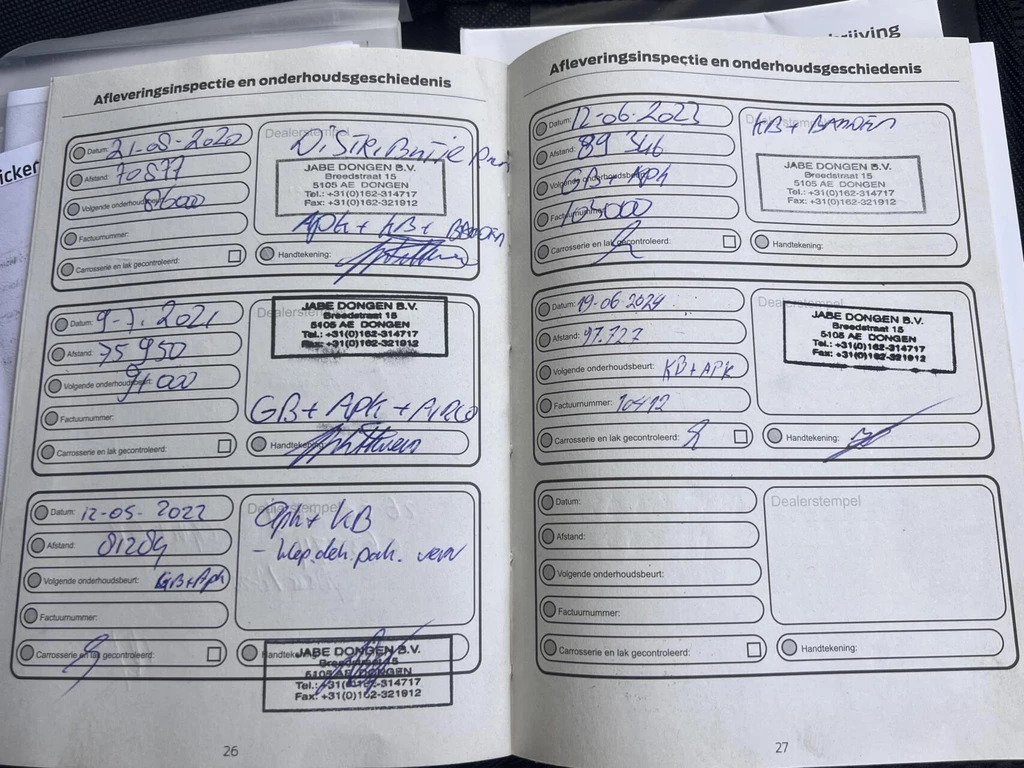 rijving
icker
Afleveringsinspectie en onderhoudsgeschiedenis
Datum: 21-08-2020
Afstand: 70877
Volgende onderhoudsbeurt:
Factuurnummer:
Carrosserie en lak gecontroleerd:
Dealerstempel
JABE DONGEN B.V.
Breedstraat 15
5105 AE DONGEN
Tel.: +31(0)162-314717
Fax: +31(0)162-321912
Apk + KB + BANDEN
Handtekening:
Datum: 9-7-2021
Afstand: 75950
Volgende onderhoudsbeurt: 91000
Factuurnummer:
Carrosserie en lak gecontroleerd:
Dealerstempel
JABE DONGEN B.V.
Breedstraat 15
5105 AE DONGEN
Tel.: +31(0)162-314717
Fax: +31(0)162-321912
GB + Apk + AIRCO
Handtekening:
Datum: 12-05-2022
Afstand: 81284
Volgende onderhoudsbeurt: GB+Apk
Factuurnummer:
Carrosserie en lak gecontroleerd:
Dealerstempel
Apk + KB
- klep.dek.pak. verv
Handtekening:
JABE DONGEN B.V.
Breedstraat 15
5105 AE DONGEN
Tel.: +31(0)162-314717
Fax: +31(0)162-321912
26
Afleveringsinspectie en onderhoudsgeschiedenis
Datum: 12-06-2023
Afstand: 89346
Volgende onderhoudsbeurt: GB + Apk
Factuurnummer:
Carrosserie en lak gecontroleerd:
Dealerstempel
KB + BANDEN
JABE DONGEN B.V.
Breedstraat 15
5105 AE DONGEN
Tel.: +31(0)162-314717
Fax: +31(0)162-321912
Handtekening:
Datum: 19-06-2024
Afstand: 97.727
Volgende onderhoudsbeurt: KB+APK
Factuurnummer: 10412
Carrosserie en lak gecontroleerd:
Dealerstempel
JABE DONGEN B.V.
Breedstraat 15
5105 AE DONGEN
Tel.: +31(0)162-314717
Fax: +31(0)162-321912
Handtekening:
Datum:
Afstand:
Volgende onderhoudsbeurt:
Factuurnummer:
Carrosserie en lak gecontroleerd:
Dealerstempel
Handtekening:
27